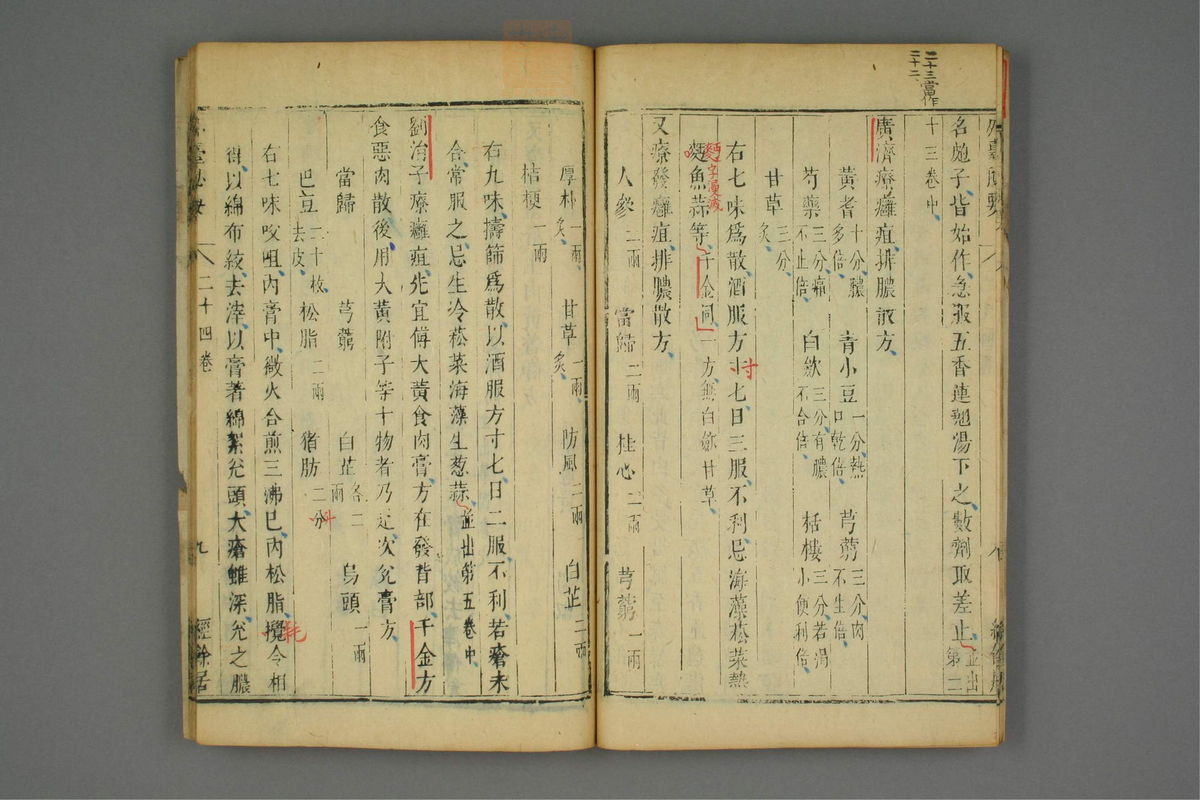 二十三當作
二十二
名頗子皆始作急服五香連翹湯下之數劑取差止並出第二
十三卷中
廣濟療癰疽排膿散方
黃耆十分膿多倍 青小豆一分熱口乾倍 芎藭三分肉不生倍
芍藥三分痛不止倍 白蘞三分有膿不合倍 栝樓三分若渴小便利倍
甘草三分炙
右七味爲散酒服方寸七日三服不利忌海藻菘菜熱
寸
麵魚蒜等千金同一方無白蘞甘草
又療發癰疽排膿散方
人參二兩 當歸二兩 桂心二兩 芎藭一兩
厚朴一兩炙 甘草一兩炙 防風二兩 白芷二兩
桔梗一兩
右九味擣篩爲散以酒服方寸七日二服不利若瘡未
合常服之忌生冷菘菜海藻生葱蒜並出第五卷中
劉涓子療癰疽先宜傅大黃食肉膏方在發背部千金方
食惡肉散後用大黃附子等十物者乃是次兌膏方
當歸 芎藭 白芷各二兩 烏頭一兩
巴豆二十枚去皮 松脂二兩 猪肪二分
右七味㕮咀內膏中微火合煎三沸已內松脂攪令相
得以綿布絞去滓以膏著綿絮兌頭大瘡雖深兌之膿
外臺祕要 二十四卷 九 經餘居